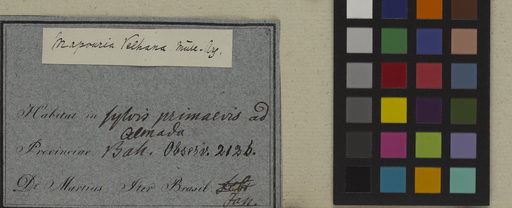 Mapouria Velhana Müll. Arg.
Habitat in sylvis primaevis ad
Almada
Provinciae Bah. Observ. 2126.
Dr. Martius Iter Brasil. Febr